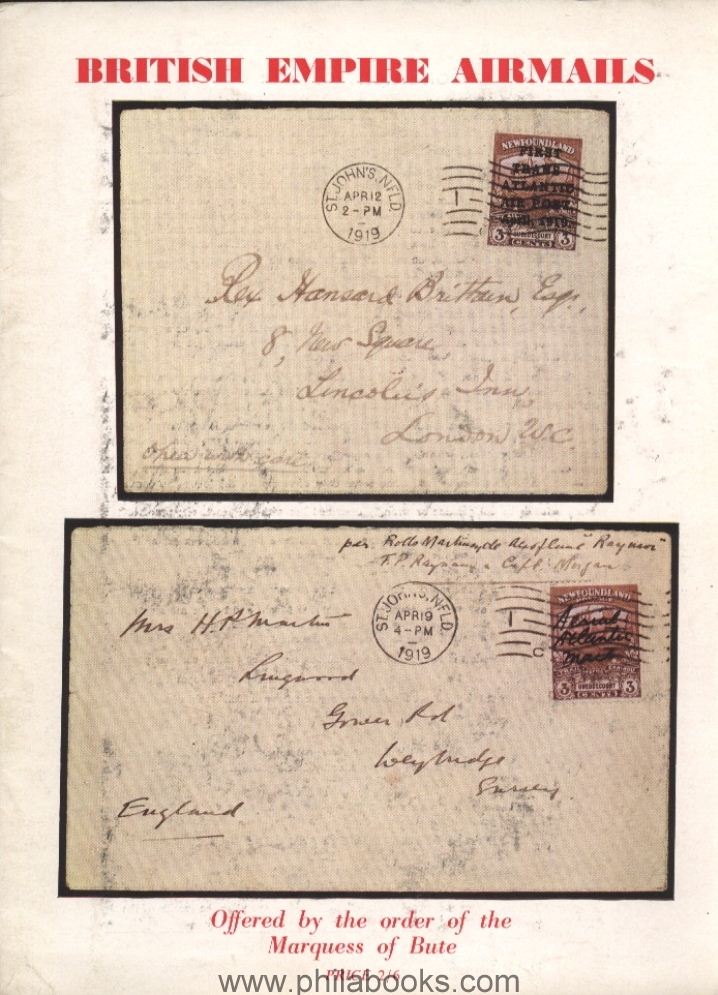 BRITISH EMPIRE AIRMAILS
ST. JOHN'S, NFLD.
APR 12
2 - PM
1919
NEWFOUNDLAND
FIRST
TRANS-
ATLANTIC
AIR POST,
April, 1919.
3 3
CENTS
Rex Hansard Brittain, Esq.,
8, New Square,
Lincoln's Inn
London W.C.
Open with care
per Rolls Martinsyde Aeroplane "Raymor"
F.P. Raynham & Capt. Morgan
ST. JOHN'S, NFLD.
APR 19
4 - PM
1919
NEWFOUNDLAND
Aerial
Atlantic
Mail
GUEUDECOURT
3 3
CENTS
Mrs H.P. Martin
Ringwood
Gower Rd
Weybridge
Surrey.
England
Offered by the order of the
Marquess of Bute
PRICE 2/6
www.philabooks.com